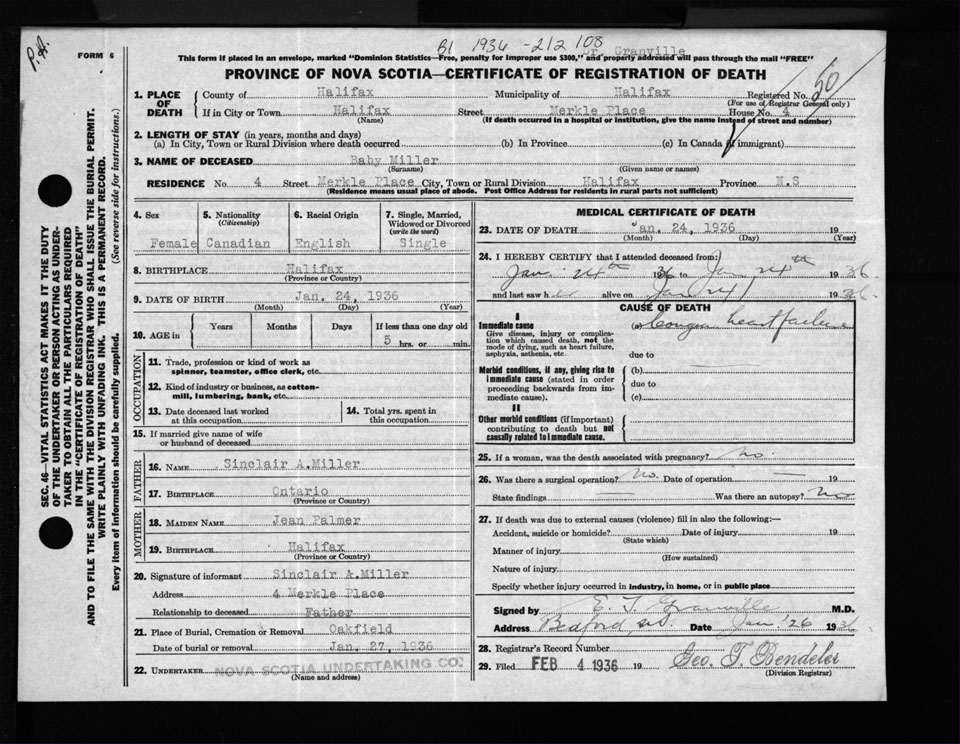 P.H.
B1 1936 - 212 108
FORM 6
Dr. Granville
This form if placed in an envelope, marked "Dominion Statistics—Free, penalty for improper use $300," and properly addressed will pass through the mail "FREE"
PROVINCE OF NOVA SCOTIA—CERTIFICATE OF REGISTRATION OF DEATH
SEC. 46—VITAL STATISTICS ACT MAKES IT THE DUTY
OF THE UNDERTAKER OR PERSON ACTING AS UNDER-
TAKER TO OBTAIN ALL THE PARTICULARS REQUIRED
IN THE "CERTIFICATE OF REGISTRATION OF DEATH"
AND TO FILE THE SAME WITH THE DIVISION REGISTRAR WHO SHALL ISSUE THE BURIAL PERMIT.
WRITE PLAINLY WITH UNFADING INK. THIS IS A PERMANENT RECORD.
Every item of information should be carefully supplied. (See reverse side for instructions.)
1. PLACE OF DEATH
County of Halifax Municipality of Halifax Registered No. 50
(For use of Registrar General only)
If in City or Town Halifax Street Merkle Place House No. 4
(Name) (If death occurred in a hospital or institution, give the name instead of street and number)
2. LENGTH OF STAY (in years, months and days)
(a) In City, Town or Rural Division where death occurred (b) In Province (c) In Canada (if immigrant)
3. NAME OF DECEASED Baby Miller
(Surname) (Given name or names)
RESIDENCE No. 4 Street Merkle Place City, Town or Rural Division Halifax Province N.S
(Residence means usual place of abode. Post Office Address for residents in rural parts not sufficient)
4. Sex 5. Nationality (Citizenship) 6. Racial Origin 7. Single, Married, Widowed or Divorced (write the word)
Female Canadian English Single
8. BIRTHPLACE Halifax
(Province or Country)
9. DATE OF BIRTH Jan. 24, 1936
(Month) (Day) (Year)
10. AGE in Years Months Days If less than one day old
5 hrs. or min.
OCCUPATION
11. Trade, profession or kind of work as
spinner, teamster, office clerk, etc.
12. Kind of industry or business, as cotton-
mill, lumbering, bank, etc.
13. Date deceased last worked
at this occupation
14. Total yrs. spent in
this occupation
15. If married give name of wife
or husband of deceased
FATHER
16. NAME Sinclair A.Miller
17. BIRTHPLACE Ontario
(Province or Country)
MOTHER
18. MAIDEN NAME Jean Palmer
19. BIRTHPLACE Halifax
(Province or Country)
20. Signature of informant Sinclair A.Miller
Address 4 Merkle Place
Relationship to deceased Father
21. Place of Burial, Cremation or Removal Oakfield
Date of burial or removal Jan. 27, 1936
22. UNDERTAKER NOVA SCOTIA UNDERTAKING CO.
(Name and address)
MEDICAL CERTIFICATE OF DEATH
23. DATE OF DEATH Jan. 24, 1936 19
(Month) (Day) (Year)
24. I HEREBY CERTIFY that I attended deceased from:
Jan. 24th 1936 to Jan 24th 1936
and last saw h alive on Jan 24 1936
CAUSE OF DEATH
I
Immediate cause (a) heart failure
Give disease, injury or complica-
tion which caused death, not the
mode of dying, such as heart failure,
asphyxia, asthenia, etc.
due to
Morbid conditions, if any, giving rise to
immediate cause (stated in order
proceeding backwards from im-
mediate cause).
(b)
due to
(c)
II
Other morbid conditions (if important)
contributing to death but not
causally related to immediate cause.
25. If a woman, was the death associated with pregnancy? No.
26. Was there a surgical operation? No. Date of operation — 19
State findings — Was there an autopsy? No
27. If death was due to external causes (violence) fill in also the following:—
Accident, suicide or homicide? Date of injury 19
(State which)
Manner of injury
(How sustained)
Nature of injury
Specify whether injury occurred in industry, in home, or in public place
Signed by E. T. Granville M.D.
Address Bedford, N.S. Date Jan 26 1936
28. Registrar's Record Number
29. Filed FEB 4 1936 19 Geo. T. Bendeler
(Division Registrar)